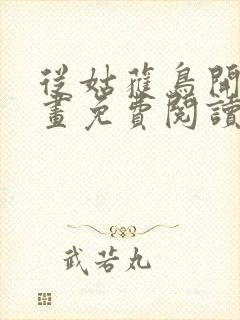 從姑蘿鳥開
畫免費閱讀
武若丸